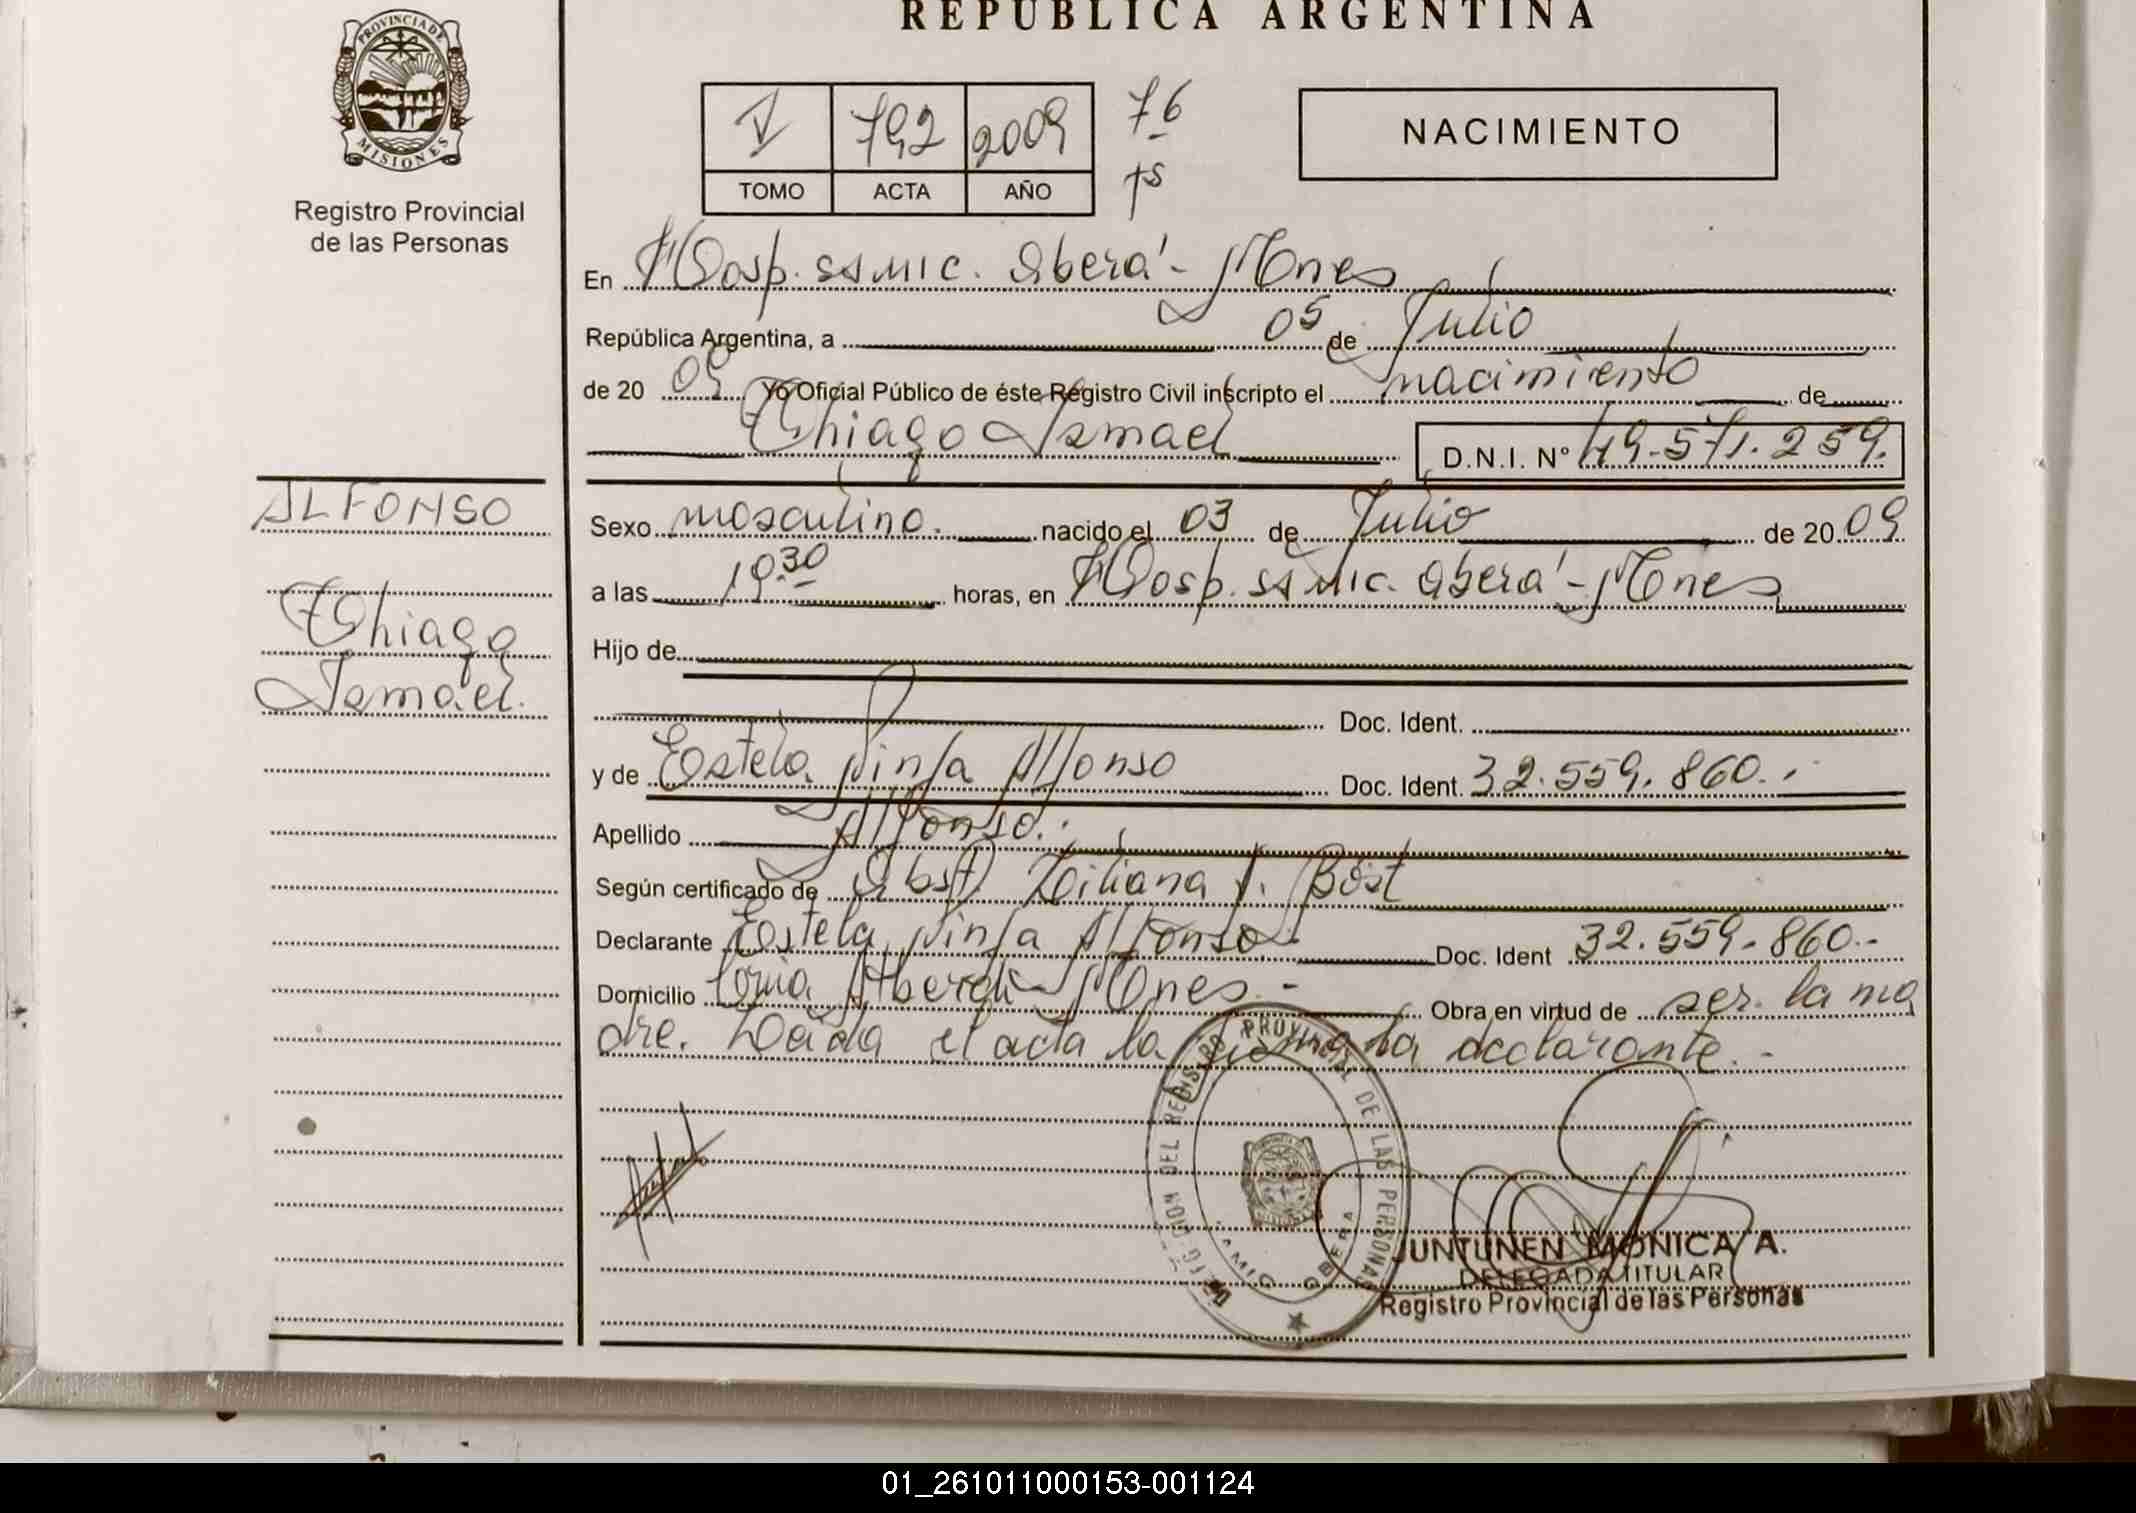 REPUBLICA ARGENTINA
PROVINCIA DE MISIONES
Registro Provincial
de las Personas
V 792 2009 76
TOMO ACTA AÑO TS
NACIMIENTO
En Hosp. SAMIC. Oberá - Mnes
República Argentina, a 05 de Julio
de 20 09 Yo Oficial Público de éste Registro Civil inscripto el nacimiento de
Thiago Ismael D.N.I. N° 49.571.259.
ALFONSO
Thiago
Ismael.
Sexo masculino. nacido el 03 de Julio de 20 09
a las 19.30 horas, en Hosp. SAMIC. Oberá - Mnes
Hijo de
Doc. Ident.
y de Estela Ninfa Alfonso Doc. Ident. 32.559.860.-
Apellido Alfonso.-
Según certificado de Obst. Liliana Bost
Declarante Estela Ninfa Alfonso.- Doc. Ident 32.559.860.-
Domicilio Alberdi - Mnes.- Obra en virtud de ser la ma
dre. Leída el acta la firma la declarante.-
DELEGACION DEL REGISTRO PROVINCIAL DE LAS PERSONAS
SAMIC OBERA
JUNTUNEN MONICA A.
DELEGADA TITULAR
Registro Provincial de las Personas
01_261011000153-001124